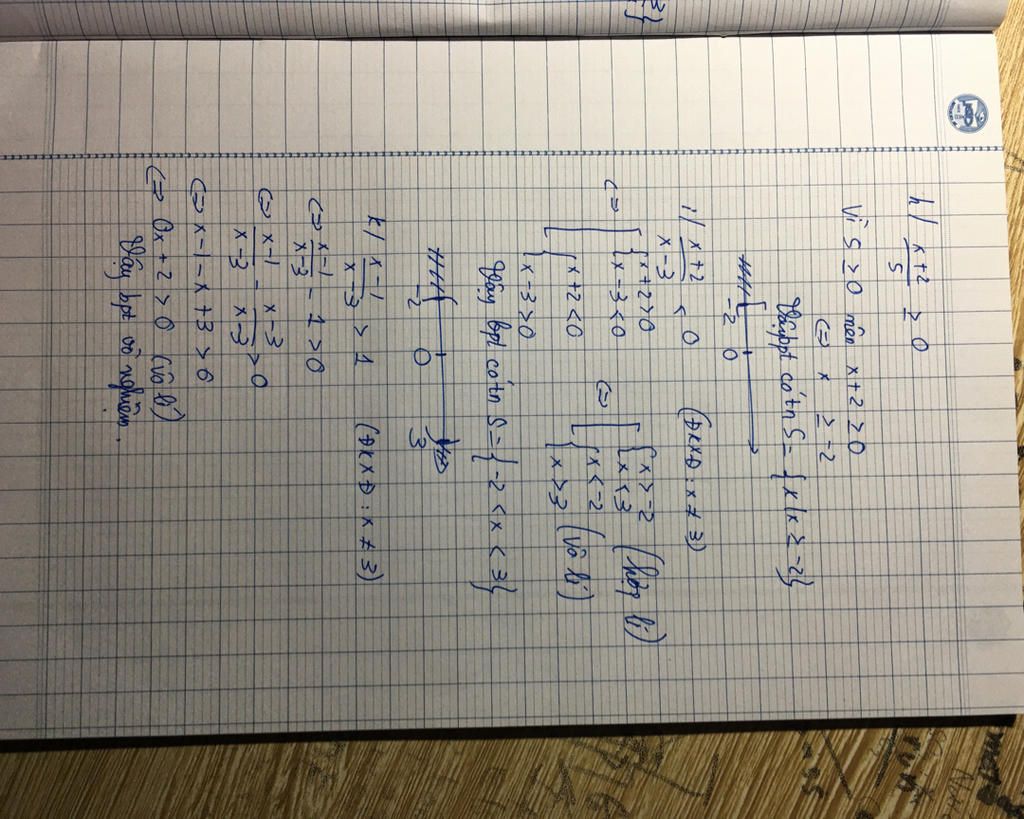 h/ x+2/5 ≥ 0
Vì 5 ≥ 0 nên x+2 ≥ 0
<=> x ≥ -2
Vậy bpt có tn S = {x/x ≥ -2}
-2 0
i/ x+2/x-3 < 0 (ĐKXĐ: x ≠ 3)
<=> [ { x+2>0 <=> [ { x>-2 (hợp lí)
{ x-3<0 { x<3
{ x+2<0 { x<-2 (vô lí)
{ x-3>0 { x>3
Vậy bpt có tn S = {-2 < x < 3}
-2 0 3
k/ x-1/x-3 > 1 (ĐKXĐ: x ≠ 3)
<=> x-1/x-3 - 1 > 0
<=> x-1/x-3 - x-3/x-3 > 0
<=> x-1-x+3 > 0
<=> 0x+2 > 0 (vô lí)
Vậy bpt vô nghiệm.